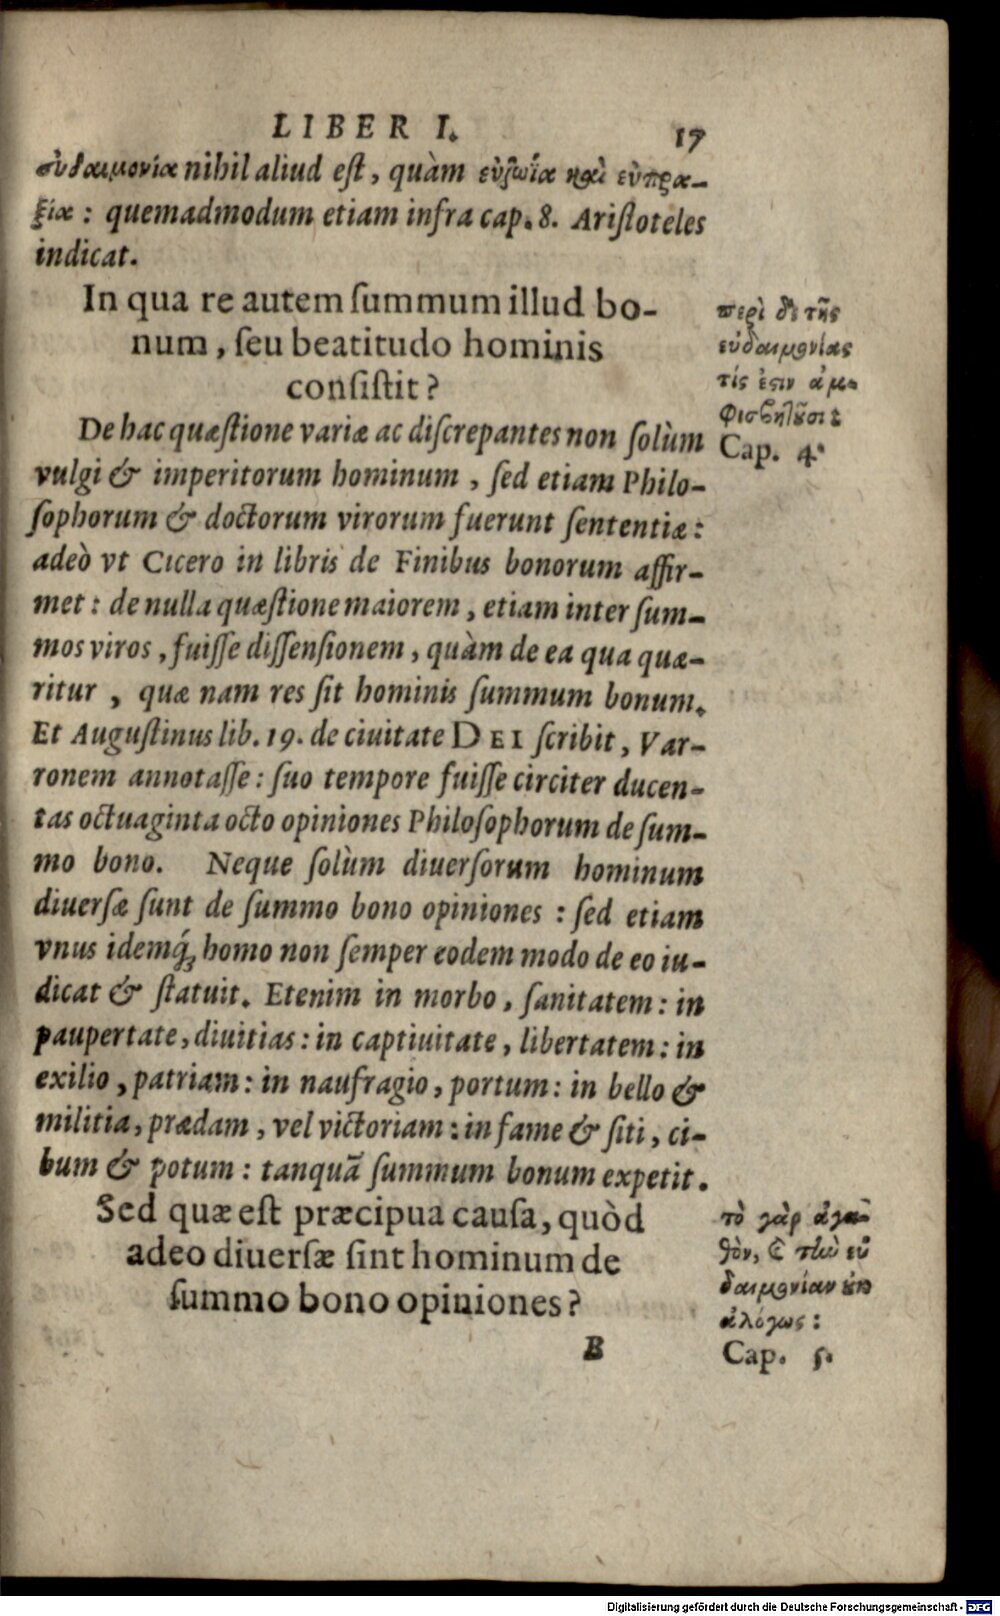 LIBER I. 17
εὐδαιμονία nihil aliud eſt, quàm εὐζωΐα καὶ εὐπρα-
ξία: quemadmodum etiam infra cap. 8. Ariſtoteles
indicat.
In qua re autem ſummum illud bo-
num, ſeu beatitudo hominis
conſiſtit?
περὶ δὲ τῆς
εὐδαιμονίας
τίς ἐστιν ἀμ-
φισβητοῦσι:
Cap. 4.
De hac quæſtione variæ ac diſcrepantes non ſolùm
vulgi & imperitorum hominum, ſed etiam Philo-
ſophorum & doctorum virorum fuerunt ſententiæ:
adeò vt Cicero in libris de Finibus bonorum affir-
met: de nulla quæſtione maiorem, etiam inter ſum-
mos viros, fuiſſe diſſenſionem, quàm de ea qua quæ-
ritur, quæ nam res ſit hominis ſummum bonum.
Et Auguſtinus lib. 19. de ciuitate DEI ſcribit, Var-
ronem annotaſſe: ſuo tempore fuiſſe circiter ducen-
tas octuaginta octo opiniones Philoſophorum de ſum-
mo bono. Neque ſolùm diuerſorum hominum
diuerſæ ſunt de ſummo bono opiniones: ſed etiam
vnus idemq́; homo non ſemper eodem modo de eo iu-
dicat & ſtatuit. Etenim in morbo, ſanitatem: in
paupertate, diuitias: in captiuitate, libertatem: in
exilio, patriam: in naufragio, portum: in bello &
militia, prædam, vel victoriam: in fame & ſiti, ci-
bum & potum: tanquã ſummum bonum expetit.
Sed quæ eſt præcipua cauſa, quòd
adeo diuerſæ ſint hominum de
ſummo bono opiniones?
τὸ γὰρ ἀγα-
θὸν, ϗ τὴν εὐ
δαιμονίαν οὐκ
ἀλόγως:
Cap. 5.
B
Digitalisierung gefördert durch die Deutsche Forschungsgemeinschaft - DFG